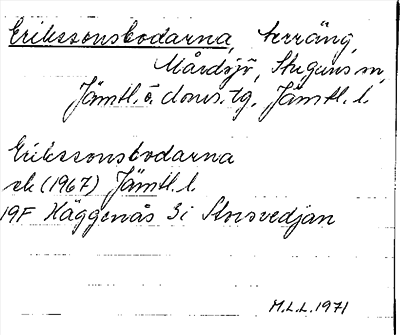 Erikssonsbodarna, terräng,
Mårdsjö, Stuguns sn,
Jämtl. ö. doms. tg, Jämtl. l.
Erikssonsbodarna
ek (1967) Jämtl. l.
19F Häggenås 3i Storsvedjan
M.L.L. 1971